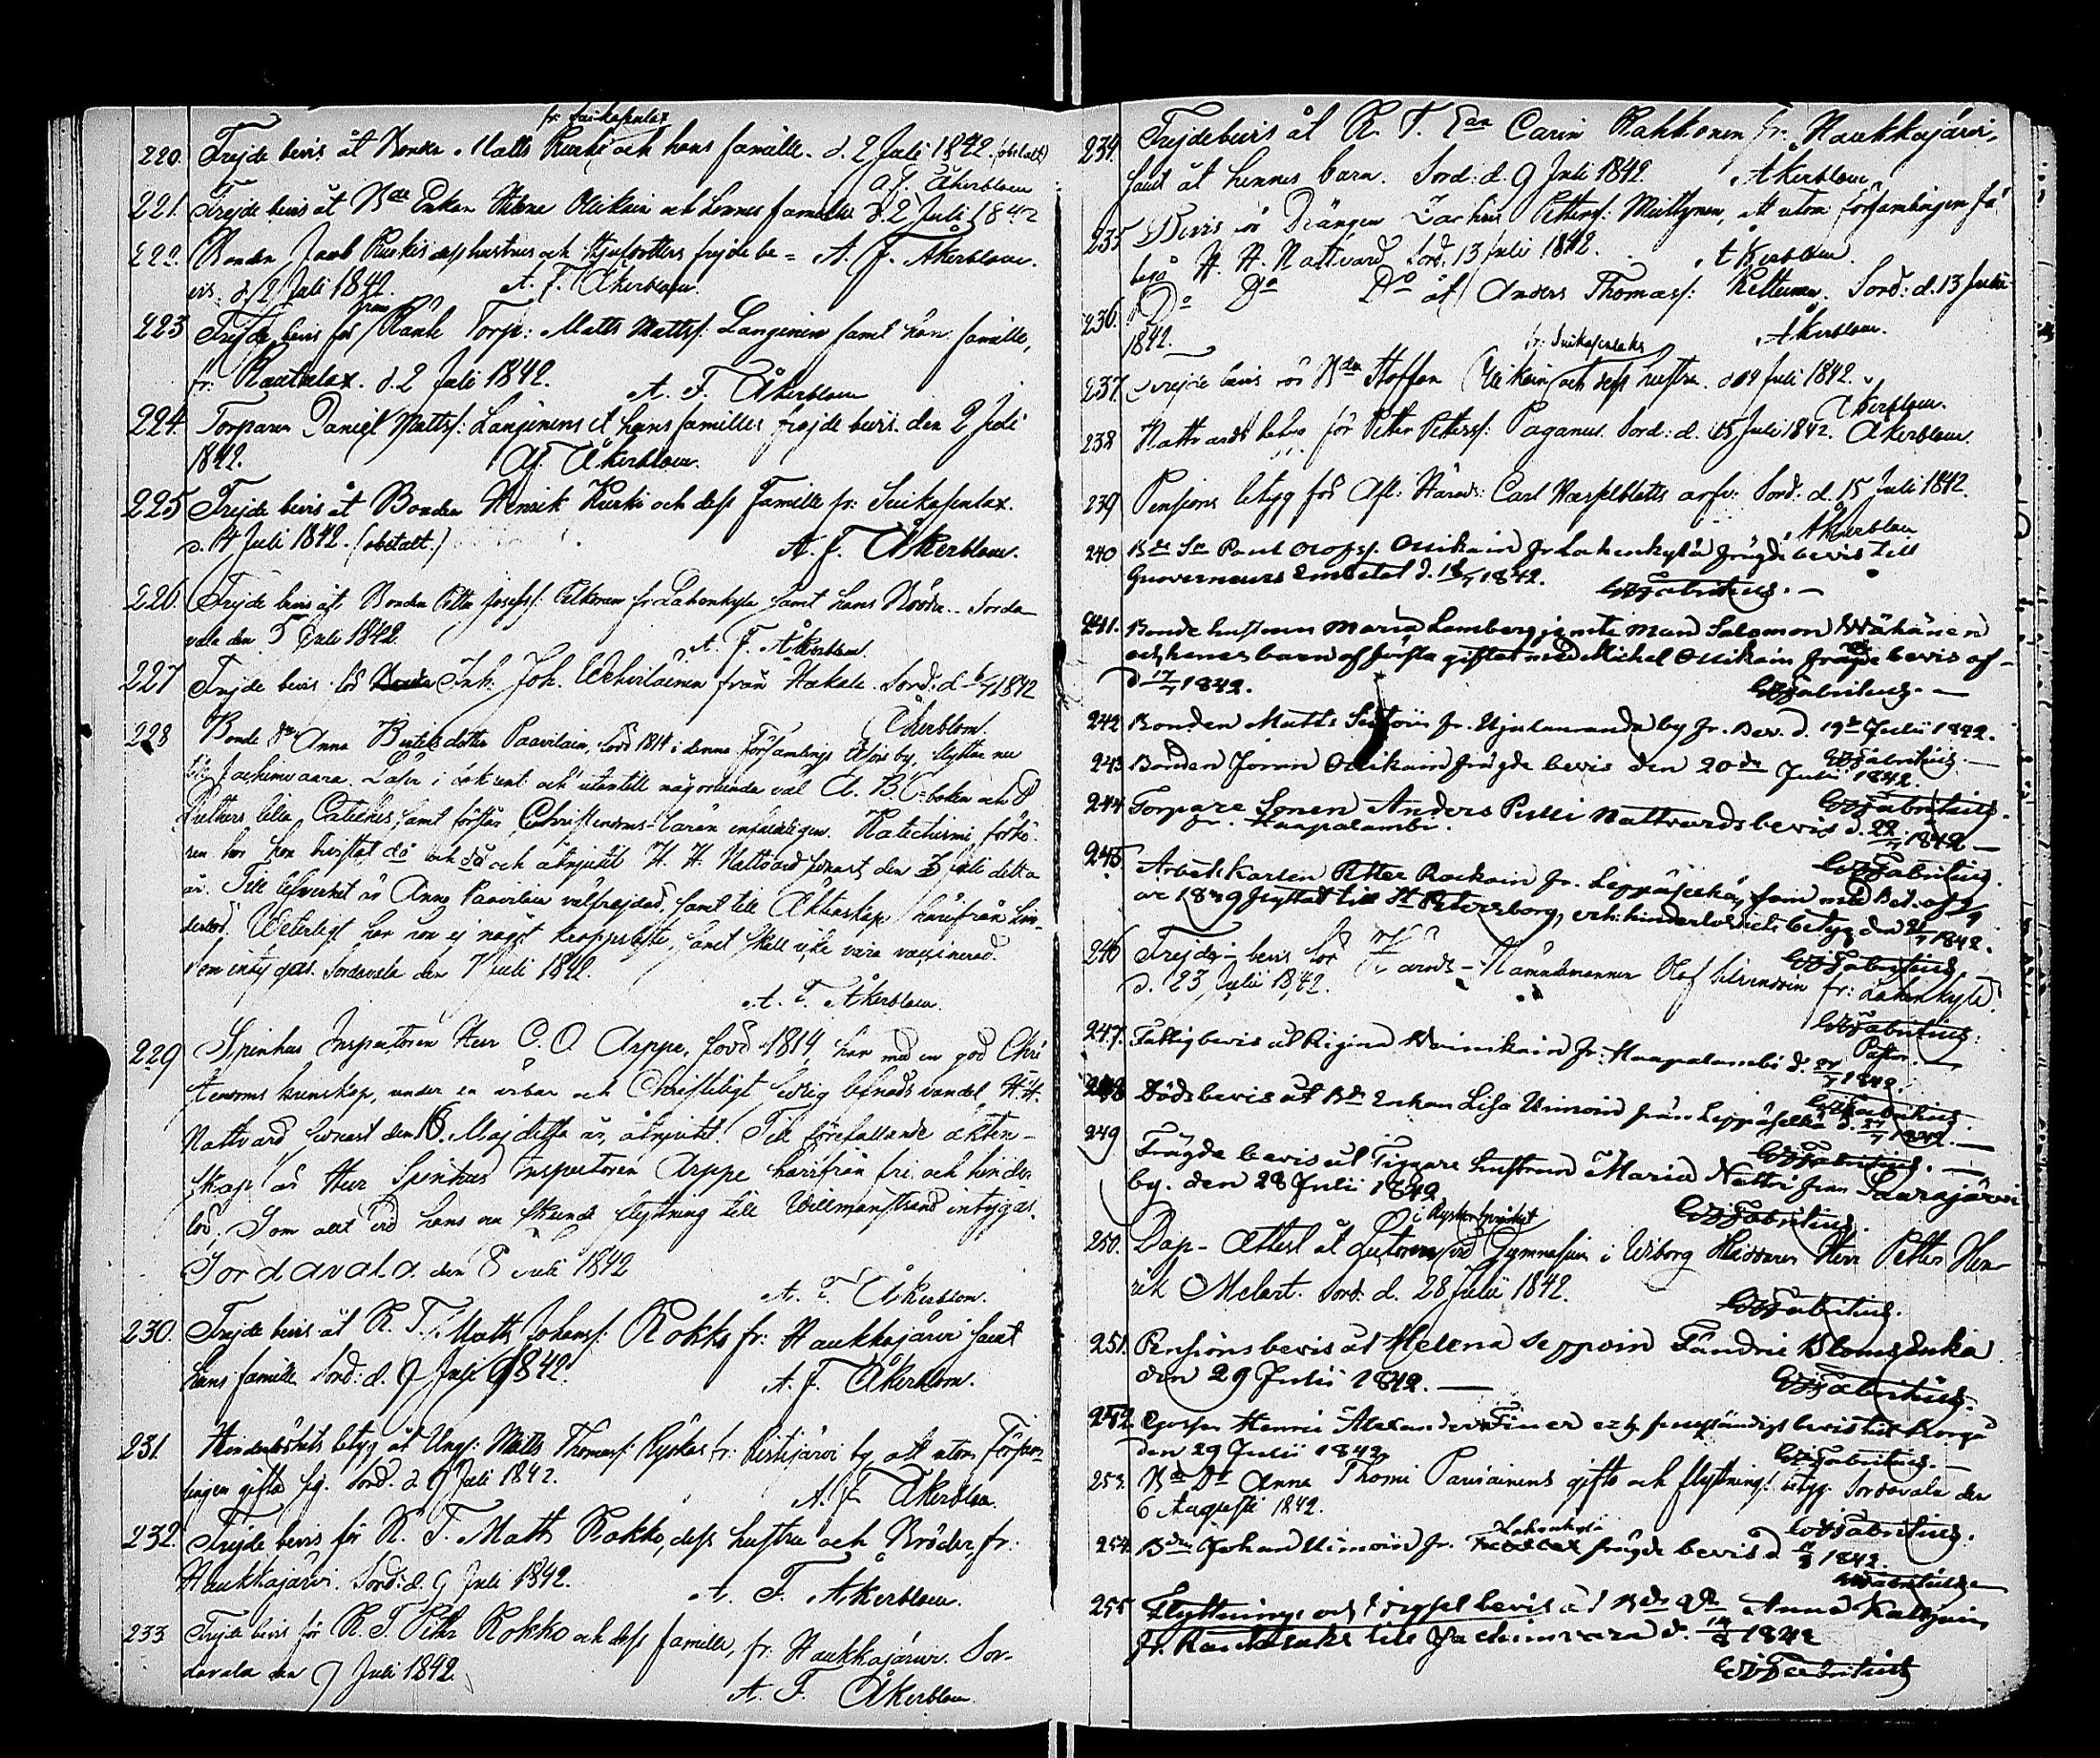 fr: Suikasenlax
220. Frejde bevis åt Bonden Matts Kurki och hans famille. d. 2 Juli 1842. (obetalt)
A. F. Åkerblom
221. Frejde bevis åt Bde Enkan Helena Ollikain och hennes famille d. 2 Juli 1842
222. Bonden Jacob Kurkis dess hustrus och frejde be= A. F. Åkerblom.
vis. d. 2 Juli 1842. A. F. Åkerblom.
223 Frejde bevis för från Torp: Matts Mattss: Langinen samt hans famille,
fr: Rautalax. d. 2 Juli 1842. A. F. Åkerblom
224. Torparen Daniel Mattss: Langinens et hans familles frejde bevis. den 2 Juli
1842. A. F. Åkerblom.
225 Frejde bevis åt Bonden Henrik Kurki och dess Famille fr: Suikasenlax.
d. 4 Juli 1842. (obetalt.) A. F. Åkerblom.
226. Frejde bevis åt Bonden Petter Josefss: Pelkonen fr: Lahenkylä samt hans Bröder. Sorda-
vala den 5 Juli 1842. A. F. Åkerblom.
227 Frejde bevis för Inh. Joh. Wehviläinen från Hakala. Sord: d. 6/7 1842
Åkerblom.
228 Bonde Dr Anna Bertelsdotter Paavilain, född 1814 i denna församlings by, flyttar nu
till Jachimvaara. Läser i bok rent och utantill någorlunda väl A. B. C-boken och D
Luthers lilla Cateches, samt förstår Christendoms-läran enfaldigen. Katechismi förhö-
ren har hon bivistat då och då och åtnjutit H. H. Nattvard senast den 3 Juli detta
år. Till lefvernet är Anna Paavilain välfrejdad, samt till Äktenskap härifrån hin-
derlös. Veterligt har hon ej något kroppslyte, samt skall icke vara vaccinerad.
Som intygas. Sordavala den 7 Juli 1842.
A. F. Åkerblom.
229 Spinhus Inspectoren Herr C. O. Arppe, född 1814, har med en god Chri
stendoms kunskap, under en ärbar och Christeligt sedlig lefnads vandel, H. H.
Nattvard senast den 16. Maj detta år, åtnjutit. Till förefallande äkten-
skap är Herr Spinhus Inspectoren Arppe härifrån fri och hinder-
lös; Som allt vid hans nu skeende flyttning till Willmanstrand intygas.
Sordavala den 8 Juli 1842
A. F. Åkerblom.
230. Frejde bevis åt K. T. Matts Johanss: Rokko fr: Haukkajärvi samt
hans famille Sord: d. 9 Juli 1842. A. F. Åkerblom.
231. Hinderlöshets betyg åt Ungk: Matts Thomass: fr: Ristijärvi by, att utom Försam-
lingen gifta sig. Sord. d. 9 Juli 1842. A. F. Åkerblom.
232. Frejde bevis för K. T. Matts Rokko, dess hustru och Bröder, fr:
Haukkajärvi. Sord: d. 9 Juli 1842. A. F. Åkerblom.
233 Frejde bevis för K. T. Pehr Rokko och dess famille, fr: Haukkajärvi. Sor-
davala den 9 Juli 1842. A. F. Åkerblom.
234. Frejdebevis åt K. T. Ean Carin Rahkonen fr: Haukkajärvi,
samt åt hennes barn. Sord: d. 9 Juli 1842. Åkerblom
235 Bevis för Drängen Zachris Petterss: att utom församlingen få
begå H. H. Nattvard. Sord. 13 Juli 1842. Åkerblom.
236. Do Do Do åt Anders Thomass: Kettunen. Sord: d. 13 Juli
1842. Åkerblom.
fr: Suikasenlaks
237. Frejde bevis för Bden Staffan Ollikain och dess hustru. d. 14 Juli 1842.
Åkerblom.
238 Nattvards betyg för Petter Peterss: Paganus. Sord: d. 15 Juli 1842. Åkerblom.
239 Pensions betyg för Afl: Härads: Carl arfv: Sord: d. 15 Juli 1842.
Åkerblom
240 Bde Sn Paul Olofss. Ollikain fr Lahenkylä frägde bevis till
Guverneurs Embetet d. 18/7 1842. Fabritius.
241. Bonde hustrun Maria Lemberg jemte Man Salomon Wäkänen
och henes barn af första giftet med Michel Ollikain frägde bevis af
d 17/7 1842. Fabritius.
242 Bonden Matts fr. Ujulanranda by fr. Bev. d. 19de Julii 1842.
Fabritius.
243 Bonden Joran Ollikain frägde bevis den 20de Julii 1842.
Fabritius.
244 Torpare Sonen Anders Pulli Nattvardsbevis d. 22/7 1842
fr. Haapalambi. Fabritius.
245 Arbets Karlen Petter Rackain fr. Leppäselkä, som med Bet. af
år 1839 flyttat till St Petersborg, erh: hinderlöshets betyg den 21/7 1842.
Fabritius.
246 Frejde-bevis för Härads-Nämndemannen Olof fr: Lahenkylä
d. 23 Julii 1842. Fabritius.
Pastor.
247. Fattigbevis åt Rigina Wainikain fr: Haapalambi d. 27/7 1842.
Fabritius
248 Dödsbevis åt Bde Enkan Lisa Uimoin från Leppäselkä d. 27/7 1842.
Fabritius.
249 Frägde bevis åt Tiggare hustrun Maria Natri från Saarajärvi
by. den 28 Julii 1842 Fabritius.
i Ryska språket
250. Dop-Attest åt Lectorn vid Gymnasium i Wiborg Herr Petter Hen-
rik Melart. Sord. d. 28 Julii 1842. Fabritius.
251. Pensions bevis åt Helena Seppoin Fändric Bloms Enka
den 29 Julii 1842. Fabritius.
252 Gossen Henric Alexander Finer bevis till Borgå
den 29 Julii 1842. Fabritius.
253. Bde Dr Anna Thoms: Parviainens gifto och flyttnings betyg. Sordavala den
6 Augusti 1842. Fabritius.
Lahenkylä
254. Bden Johan Uimoin fr. frägde bevis d 11/8 1842.
Fabritius
255 Flyttnings och bevis åt Bde Dr Anna
fr. Rautalaks till Jachimvara d. 14/8 1842
Fabritius